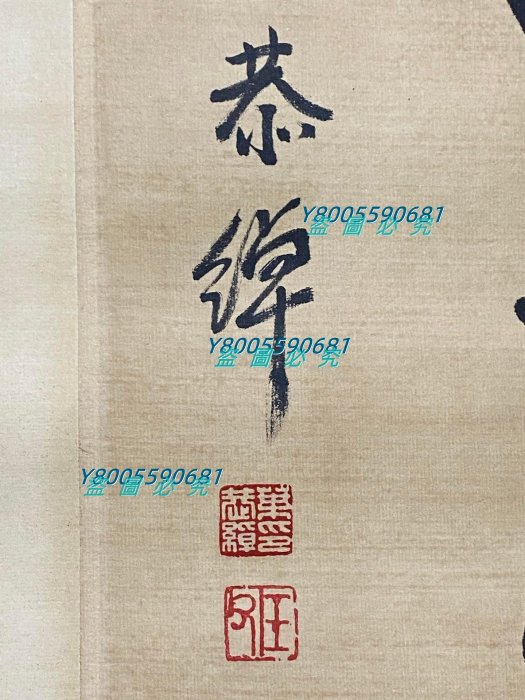 恭
綽
Y8005590681
盜圖必究
Y8005590681
盜圖必究
Y8005590681
盜圖必究
葉恭綽印